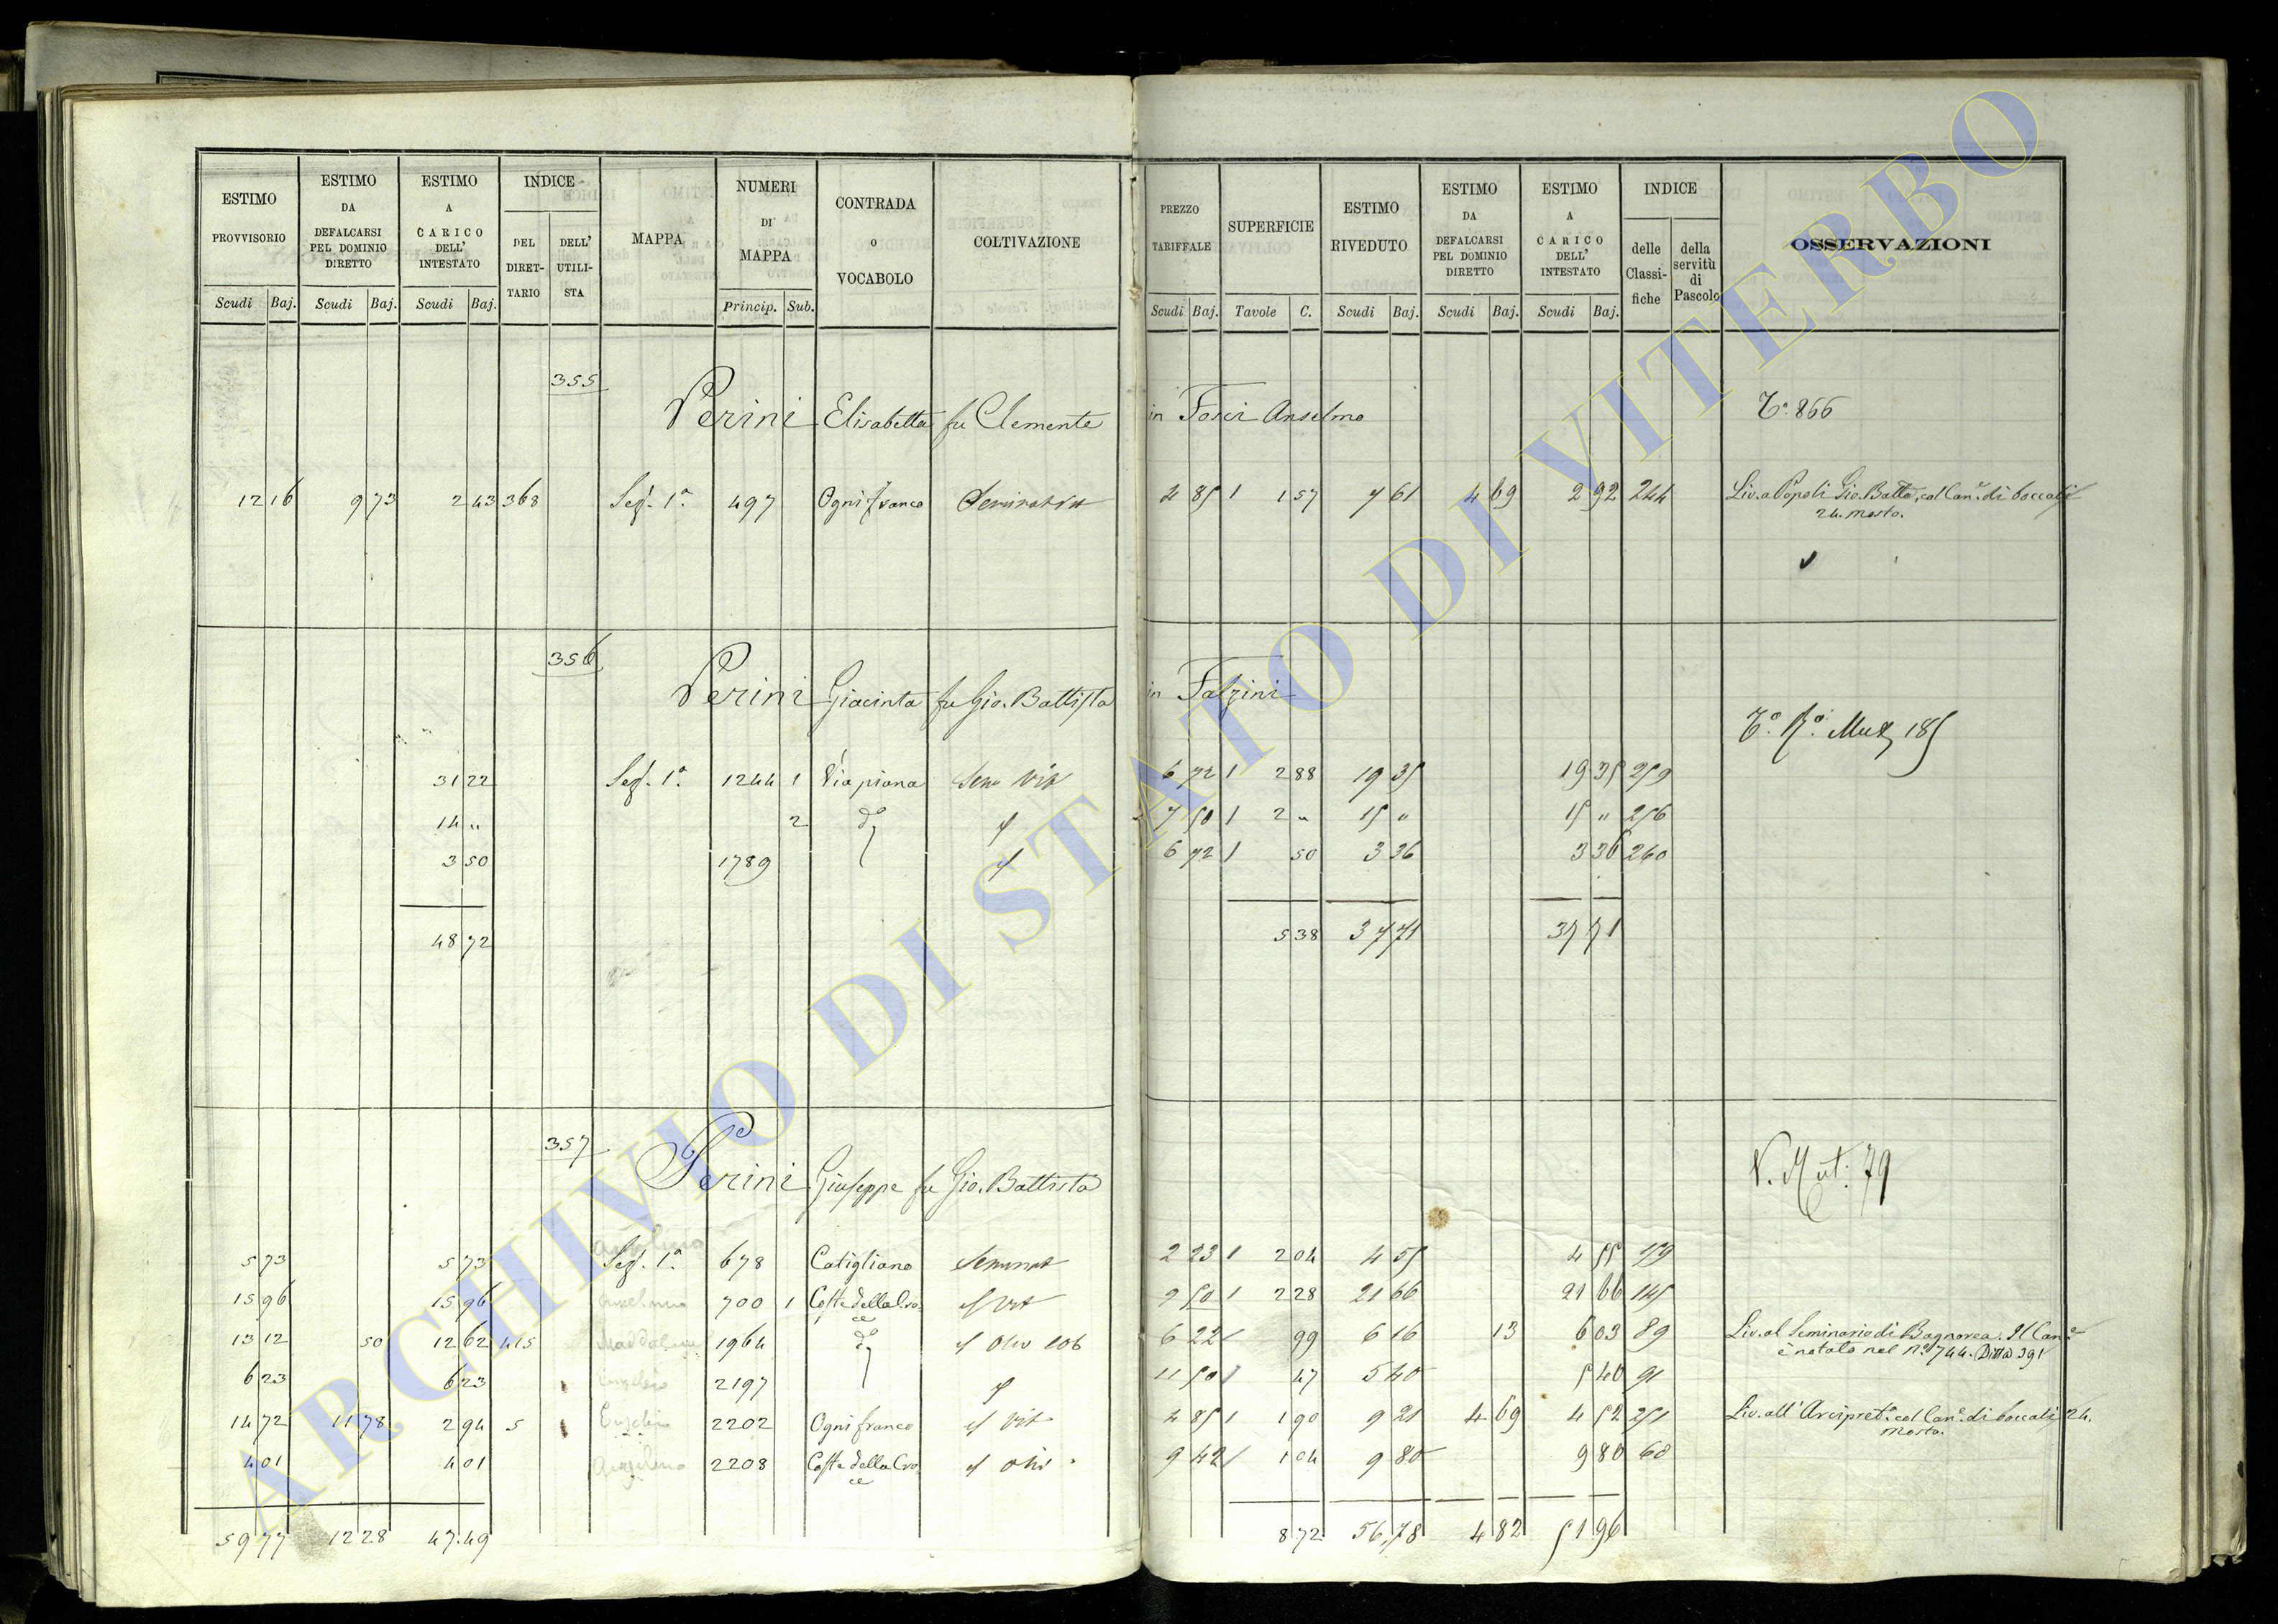 ESTIMO PROVVISORIO | ESTIMO DA DEFALCARSI PEL DOMINIO DIRETTO | ESTIMO A CARICO DELL' INTESTATO | INDICE | MAPPA | NUMERI DI MAPPA | CONTRADA o VOCABOLO | COLTIVAZIONE | PREZZO TARIFFALE | SUPERFICIE | ESTIMO RIVEDUTO | ESTIMO DA DEFALCARSI PEL DOMINIO DIRETTO | ESTIMO A CARICO DELL' INTESTATO | INDICE | OSSERVAZIONI
DEL DIRET-TARIO | DELL' UTILI-STA | delle Classi-fiche | della servitù di Pascolo
Scudi | Baj. | Scudi | Baj. | Scudi | Baj. | Princip. | Sub. | Scudi | Baj. | Tavole | C. | Scudi | Baj. | Scudi | Baj. | Scudi | Baj.
355
Perini Elisabetta fu Clemente in Fosci Anselmo
866
12 16 | 9 73 | 2 43 | 368 | Sez. 1a. | 497 | Ognifranco | Seminativo | 4 85 | 1 | 1 57 | 7 61 | 4 69 | 2 92 | 244 | Liv. a Popoli Gio. Batta, col Can.e di boccali
24. mosto.
356
Perini Giacinta fu Gio. Battista in Falzini
185
31 22 | Sez. 1a. | 1244 | 1 | Via piana | Sem Vit | 6 72 | 1 | 2 88 | 19 35 | 19 35 | 259
14 " | 2 | do | 7 50 | 1 | 2 " | 15 " | 15 " | 256
3 50 | 1789 | 6 72 | 1 | 50 | 3 36 | 3 36 | 260
48 72 | 5 38 | 37 71 | 37 71
357
Perini Giuseppe fu Gio. Battista
V. Mut: 79
5 73 | 5 73 | Sez. 1a. | 678 | Catigliano | Seminat | 2 23 | 1 | 2 04 | 4 55 | 4 55 | 159
15 96 | 15 96 | 700 | 1 | Coste della Cro- | Vit | 9 50 | 1 | 2 28 | 21 66 | 21 66 | 145
ce
13 12 | 50 | 12 62 | 415 | Maddalena | 1964 | do | Oliv | 6 22 | 99 | 6 16 | 13 | 6 03 | 89 | Liv. al Seminario di Bagnorea. Il Can.e
è notato nel No. 744. Ditta 391
6 23 | 6 23 | 2197 | 11 50 | 47 | 5 40 | 5 40 | 91
14 72 | 11 78 | 2 94 | 5 | 2202 | Ognifranco | Vit | 4 85 | 1 | 1 90 | 9 21 | 4 69 | 4 52 | 251 | Liv. all' Arcipret.a col Can.e di boccali 24.
mosto.
4 01 | 4 01 | 2208 | Coste della Cro- | Oliv | 9 42 | 1 04 | 9 80 | 9 80 | 60
ce
59 77 | 12 28 | 47.49 | 8 72 | 56.78 | 4 82 | 51 96
ARCHIVIO DI STATO DI VITERBO